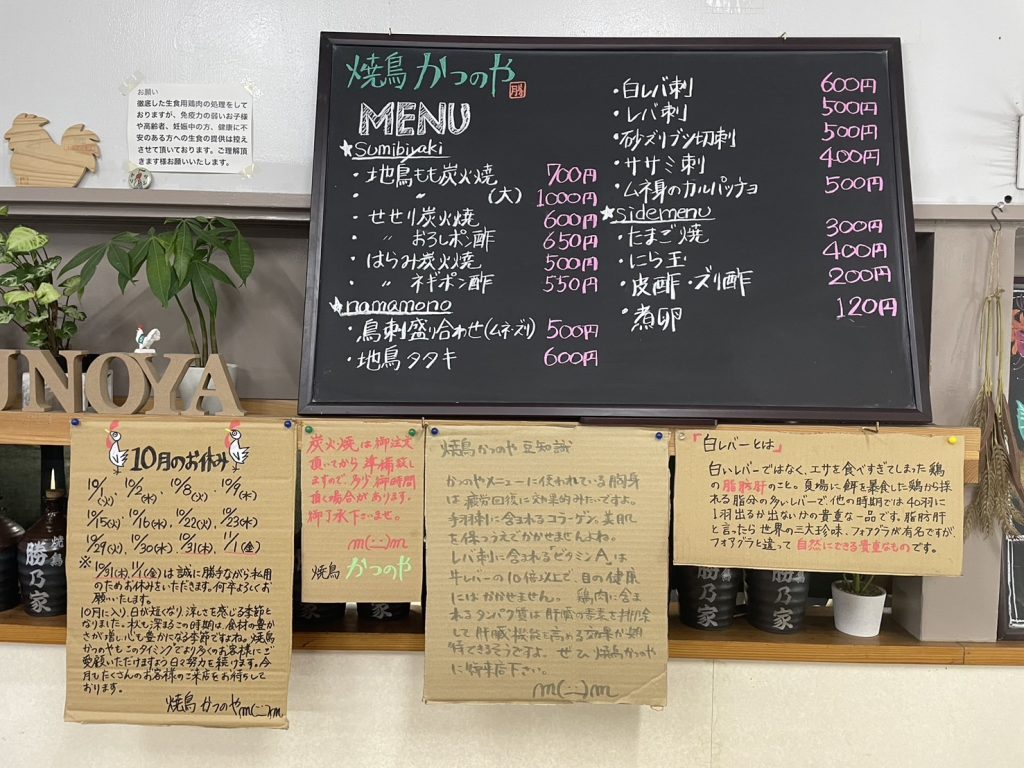 お願い
徹底した生食用鶏肉の処理をして
おりますが、免疫力の弱いお子様
や高齢者、妊娠中の方、健康に不
安のある方への生食の提供は控え
させて頂いております。ご理解頂
きます様お願いいたします。
焼鳥 かつのや
勝
MENU
★Sumibiyaki
・地鳥もも炭火焼 700円
・ 〃 (大) 1000円
・せせり炭火焼 600円
・ 〃 おろしポン酢 650円
・はらみ炭火焼 500円
・ 〃 ネギポン酢 550円
★namamono
・鳥刺盛り合わせ(ムネ・ズリ) 500円
・地鳥タタキ 600円
・白レバ刺 600円
・レバ刺 500円
・砂ズリブツ切刺 500円
・ササミ刺 400円
・ムネ身のカルパッチョ 500円
★sidemenu
・たまご焼 300円
・にら玉 400円
・皮酢・ズリ酢 200円
・煮卵 120円
UNOYA
10月のお休み
10/1(火) 10/2(水) 10/8(火) 10/9(水)
10/15(火) 10/16(水) 10/22(火) 10/23(水)
10/29(火) 10/30(水) 10/31(木) 11/1(金)
※10/31(木)、11/1(金)は誠に勝手ながら私用
のためお休みをいただきます。何卒よろしくお
願いいたします。
10月に入り、日が短くなり涼しさを感じる季節と
なりました。秋も深まるこの時期は、食材の豊か
さが増し、心も豊かになる季節ですね。焼鳥
かつのやもこのタイミングでより多くのお客様にご
愛顧いただけますよう日々努力を続けます。今
月もたくさんのお客様のご来店をお待ちして
おります。
焼鳥 かつのや m(_ _)m
炭火焼は御注文
頂いてから準備致し
ますので、多少御時間
頂く場合があります。
御了承下さいませ。
m(_ _)m
焼鳥 かつのや
焼鳥かつのや 豆知識
かつのやメニューに使われている胸身
は疲労回復に効果的みたいですよ。
手羽刺に含まれるコラーゲン。美肌
を保つうえでかかせませんよね。
レバ刺に含まれる「ビタミンA」は
牛レバーの10倍以上で、目の健康
にはかかせません。 鶏肉に含ま
れるタンパク質は肝臓の毒素を排除
して肝臓機能を高める効果が期
待できるそうですよ。ぜひ焼鳥かつのや
に御来店下さい。
m(_ _)m
「白レバーとは」
白いレバーではなく、エサを食べすぎてしまった鶏
の脂肪肝のこと。夏場に餌を暴食した鶏から採
れる脂分の多いレバーで、他の時期では40羽に
1羽出るか出ないかの貴重な一品です。脂肪肝
と言ったら世界の三大珍味、フォアグラが有名ですが、
フォアグラと違って自然にできる貴重なものです。
焼鳥
勝乃家
勝乃家
勝乃家